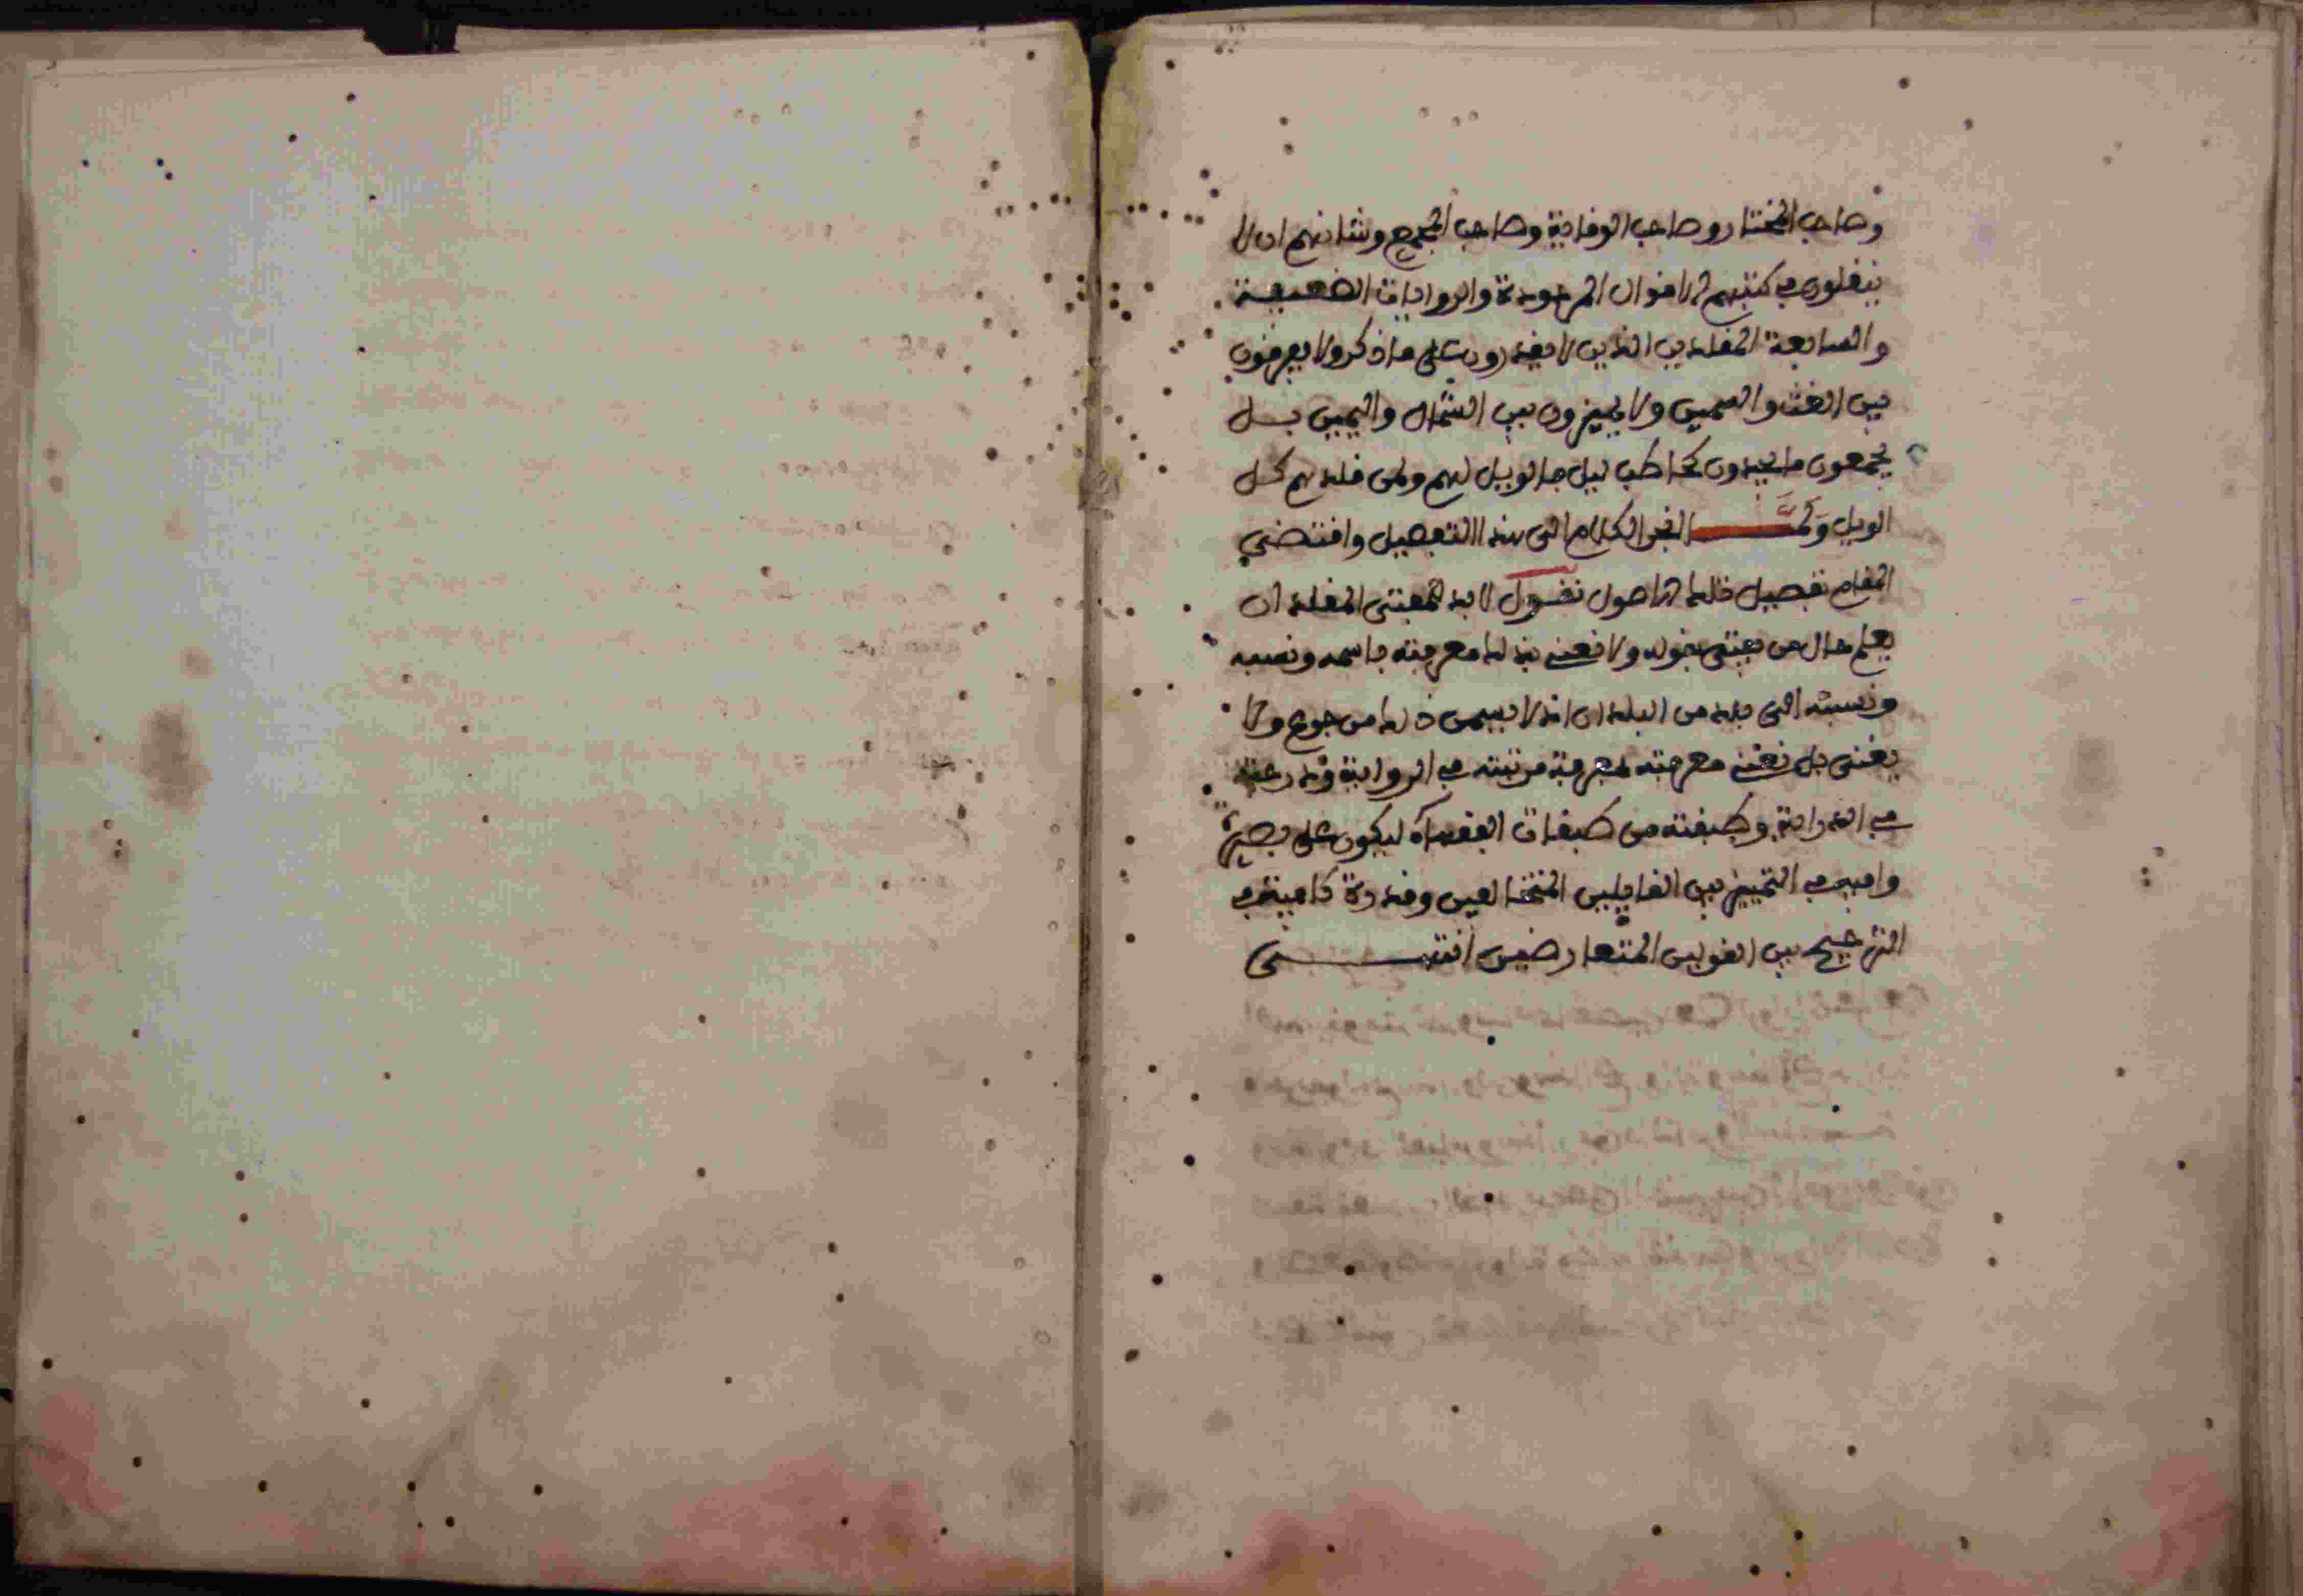 وصاحب المختار وصاحب الوقاية وصاحب المجمع وشانهم ان لا
ينقلون في كتبهم الاقوال المردودة والروايات الضعيفة
والسابعة المقلدين الذين لا يقدرون على ما ذكر ولا يعرفون
بين الغث والسمين ولا يميزون بين الشمال واليمين بل
يجمعون ما يجدون كحاطب ليل فالويل لهم ولمن قلدهم كل
الويل ولما انجر الكلام الى هذا التفصيل واقتضى
المقام تفصيل تلك الاصول نقول لابد للمفتي المقلد ان
يعلم حال من يفتي بقوله ولا نعني بذلك معرفته باسمه ونسبه
ونسبته الى بلد من البلدان اذ لا يسمن ذلك من جوع ولا
يغني بل نعني معرفته بمعرفة مرتبته في الرواية ودرجته
في الدراية وطبقته من طبقات الفقهاء ليكون على بصيرة
وافية في التمييز بين القايلين المتخالفين وقدرة كافية في
الترجيح بين القولين المتعارضين انتهى